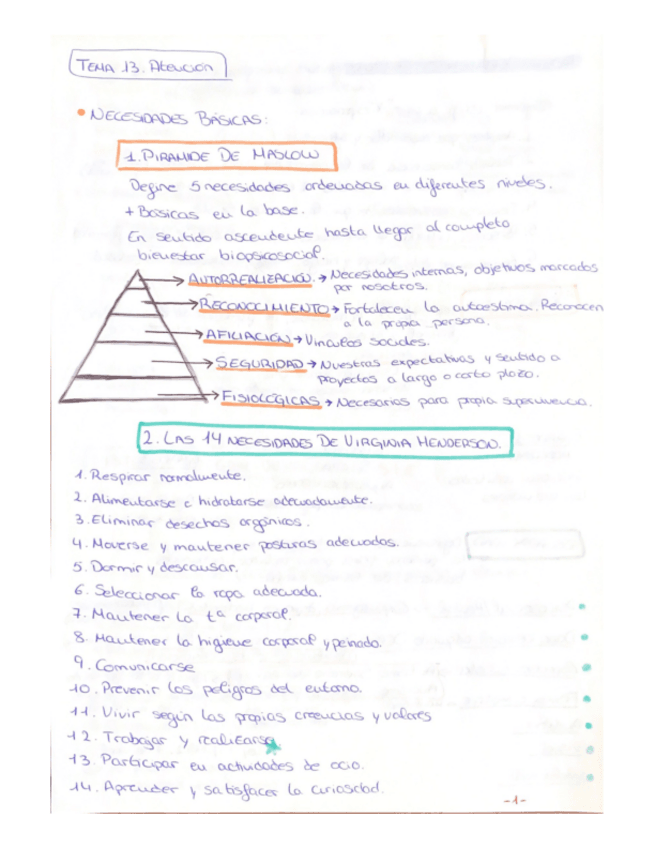 TEMA 13. Atención
• NECESIDADES BÁSICAS:
1. PIRAMIDE DE MASLOW
Define 5 necesidades ordenadas en diferentes niveles.
+ Básicas en la base.
En sentido ascendente hasta llegar al completo
bienestar biopsicosocial.
→ AUTORREALIZACIÓN. → Necesidades internas, objetivos marcados
por nosotros.
→ RECONOCIMIENTO → Fortalecen la autoestima. Reconocen
a la propia persona.
→ AFILIACIÓN → Vínculos sociales.
→ SEGURIDAD → Nuestras expectativas y sentido a
proyectos a largo o corto plazo.
→ FISIOLÓGICAS → Necesarias para propia supervivencia.
2. LAS 14 NECESIDADES DE VIRGINIA HENDERSON.
1. Respirar normalmente.
2. Alimentarse e hidratarse adecuadamente.
3. Eliminar desechos orgánicos.
4. Moverse y mantener posturas adecuadas.
5. Dormir y descansar.
6. Seleccionar la ropa adecuada.
7. Mantener la tª corporal.
8. Mantener la higiene corporal y peinado.
9. Comunicarse
10. Prevenir los peligros del entorno.
11. Vivir según las propias creencias y valores
12. Trabajar y realizarse
13. Participar en actividades de ocio.
14. Aprender y satisfacer la curiosidad.
-1-